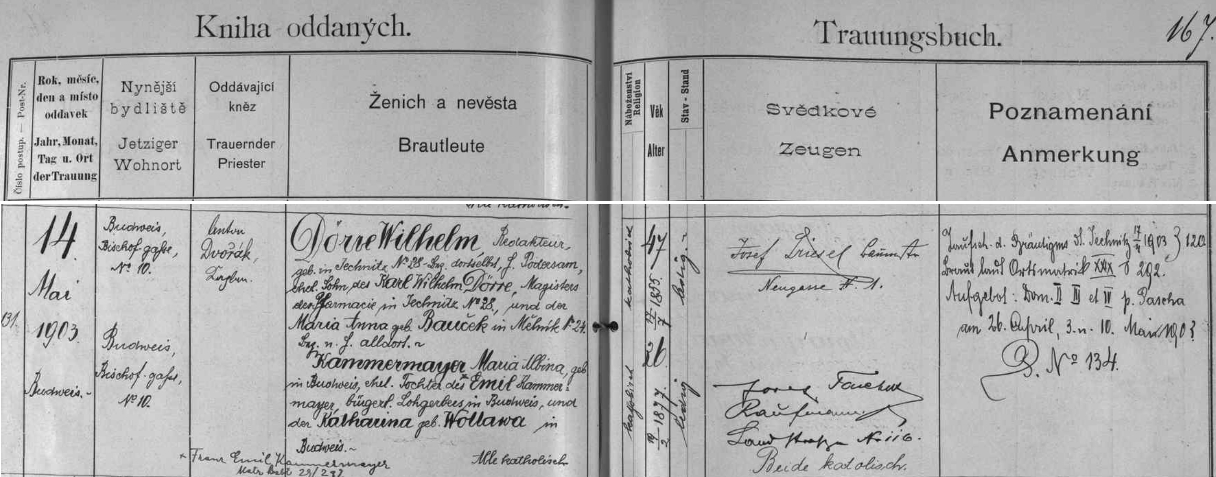 Kniha oddaných.
Trauungsbuch.
167.
Číslo postup. — Post-Nr.
Rok, měsíc,
den a místo
oddavek
Jahr, Monat,
Tag u. Ort
der Trauung
Nynější
bydliště
Jetziger
Wohnort
Oddávající
kněz
Trauernder
Priester
Ženich a nevěsta
Brautleute
Náboženství
Religion
Věk
Alter
Stav - Stand
Svědkové
Zeugen
Poznamenání
Anmerkung
131.
14.
Mai
1903.
Budweis.-
Budweis,
Bischof gasse,
No 10.
Budweis,
Bischof-gasse,
No 10.
Anton
Dvořák,
Kaplan.
Dörre Wilhelm, Redakteur,
geb. in Jechnitz No 28. Bez. dortselbst, J. Podersam,
ehel. Sohn des Karl Wilhelm Dörre, Magisters
der Pharmacie in Jechnitz No 28., und der
Maria Anna geb. Bauček in Mělnik No 24.
Bez. u. J. alldort.
Kammermayer Maria Albina, geb.
in Budweis, ehel. Tochter des Emil Kammer-
mayer, bürgerl. Lohgerbers in Budweis, und
der Katharina geb. Wollawa in
Budweis.
Franz Emil Kammermayer
Alle katholisch
katholisch
47
17/7 1855.
ledig
katholisch
26
19/2 1877.
ledig
Josef
Neugasse # 1.
Josef
Kaufmann
Landstrasse No 116.
Beide katolisch.
Taufsch. d. Bräutigms d. Jechnitz 17/4 1903
Braut laud Ortsmatrik XXIX f 292.
Aufgebot: Dom. II III et IV p. Pascha
am 26. April, 3. u. 10. Mai 1903
B. No 134.